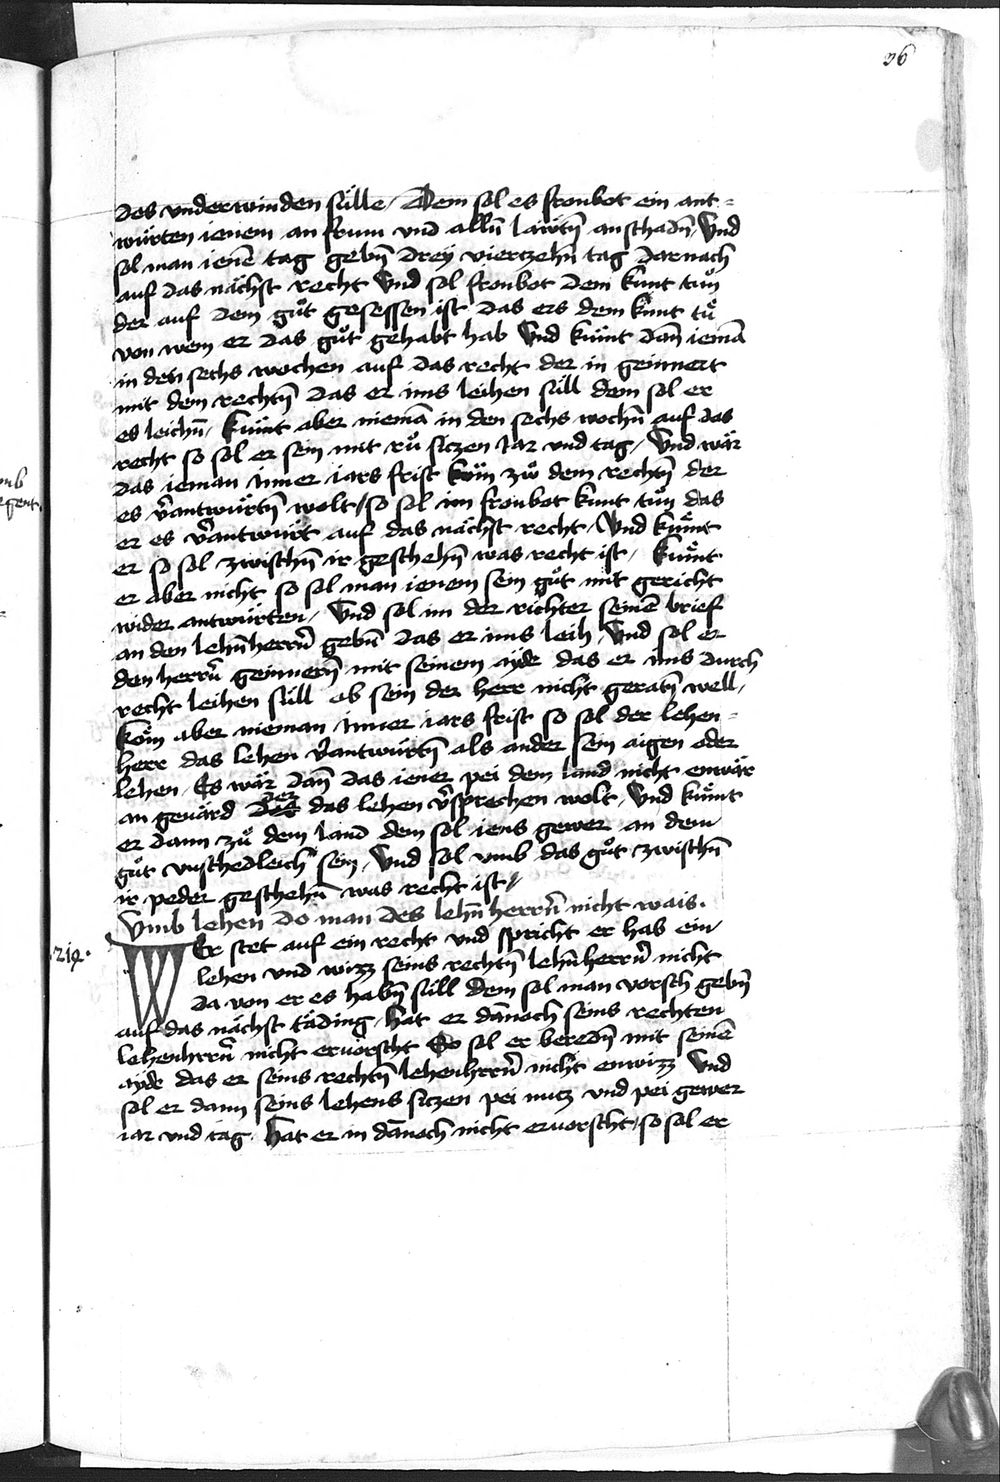 36
des vnderwinden sülle / Dem sol es fronbot ein ant=
würten ienem an frum vnd allñ läwtñ an schadñ / Vnd
sol man ienē tag gebñ drey vierzehñ tag darnach
auf das nächst recht Vnd sol fronbot dem kunt tuͦn
der auf dem guͦt gesessen ist das ers dem kunt tuͦ
von wem er das guͦt gehabt hab Vnd kumt dañ iemā
in den sechs wochen auf das recht der in geinnert
mit dem rechtñ das er ims leihen süll dem sol er
es leichñ / Kumt aber niemā in den sechs wochñ auf das
recht so sol er sein mit ruͦ siczen Jar vnd tag / Vnd wär
das ieman inner iars frist köm zuͦ dem rechtñ der
es v̄antwürtñ wolt / so sol im fronbot kunt tuͦn das
er es v̄antwürt auf das nächst recht / Vnd kümt
er so sol zwischñ ir geschehñ was recht ist / Kümt
er aber nicht so sol man ienem sein guͦt mit gericht
wider antwürten / Vnd sol im der richter seinē brief
an den lehñherrñ gebñ das er ims leih / Vnd sol er
den herrñ geinnerñ mit seinem ayde das er ims durch
recht leihen süll ob sein der herr nicht geratñ well /
Köm aber nieman inner iars frist so sol der lehen=
herr das lehen v̄antwürtñ als ander sein aigen oder
lehen / Es wär dañ das iener pei dem land nicht enwär
an geuärd der das lehen v̄sprechen wolt / Vnd kümt
er dann zuͦ dem land dem sol iens gewer an dem
guͦt vnschedleich sein / Vnd sol vmb das guͦt zwischñ
ir peder geschehñ was recht ist /
Vmb lehen do man des lehñ herrñ nicht wais.
219.
WEr stet auf ein recht vnd spricht er hab ein
lehen vnd wizz seins rechtñ lehñherrñ nicht
da von er es habñ süll dem sol man vorsch gebñ
auf das nächst täding / hat er dānoch seins rechten
lehenhrrñ nicht eruorscht So sol er beredñ mit seinē
ayde das er seins rechtñ lehenhrrñ nicht enwizz Vnd
sol er dann seins lehens siczen pei nucz vnd pei gewer
iar vnd tag / Hat er in dānoch nicht eruorscht / so sol er